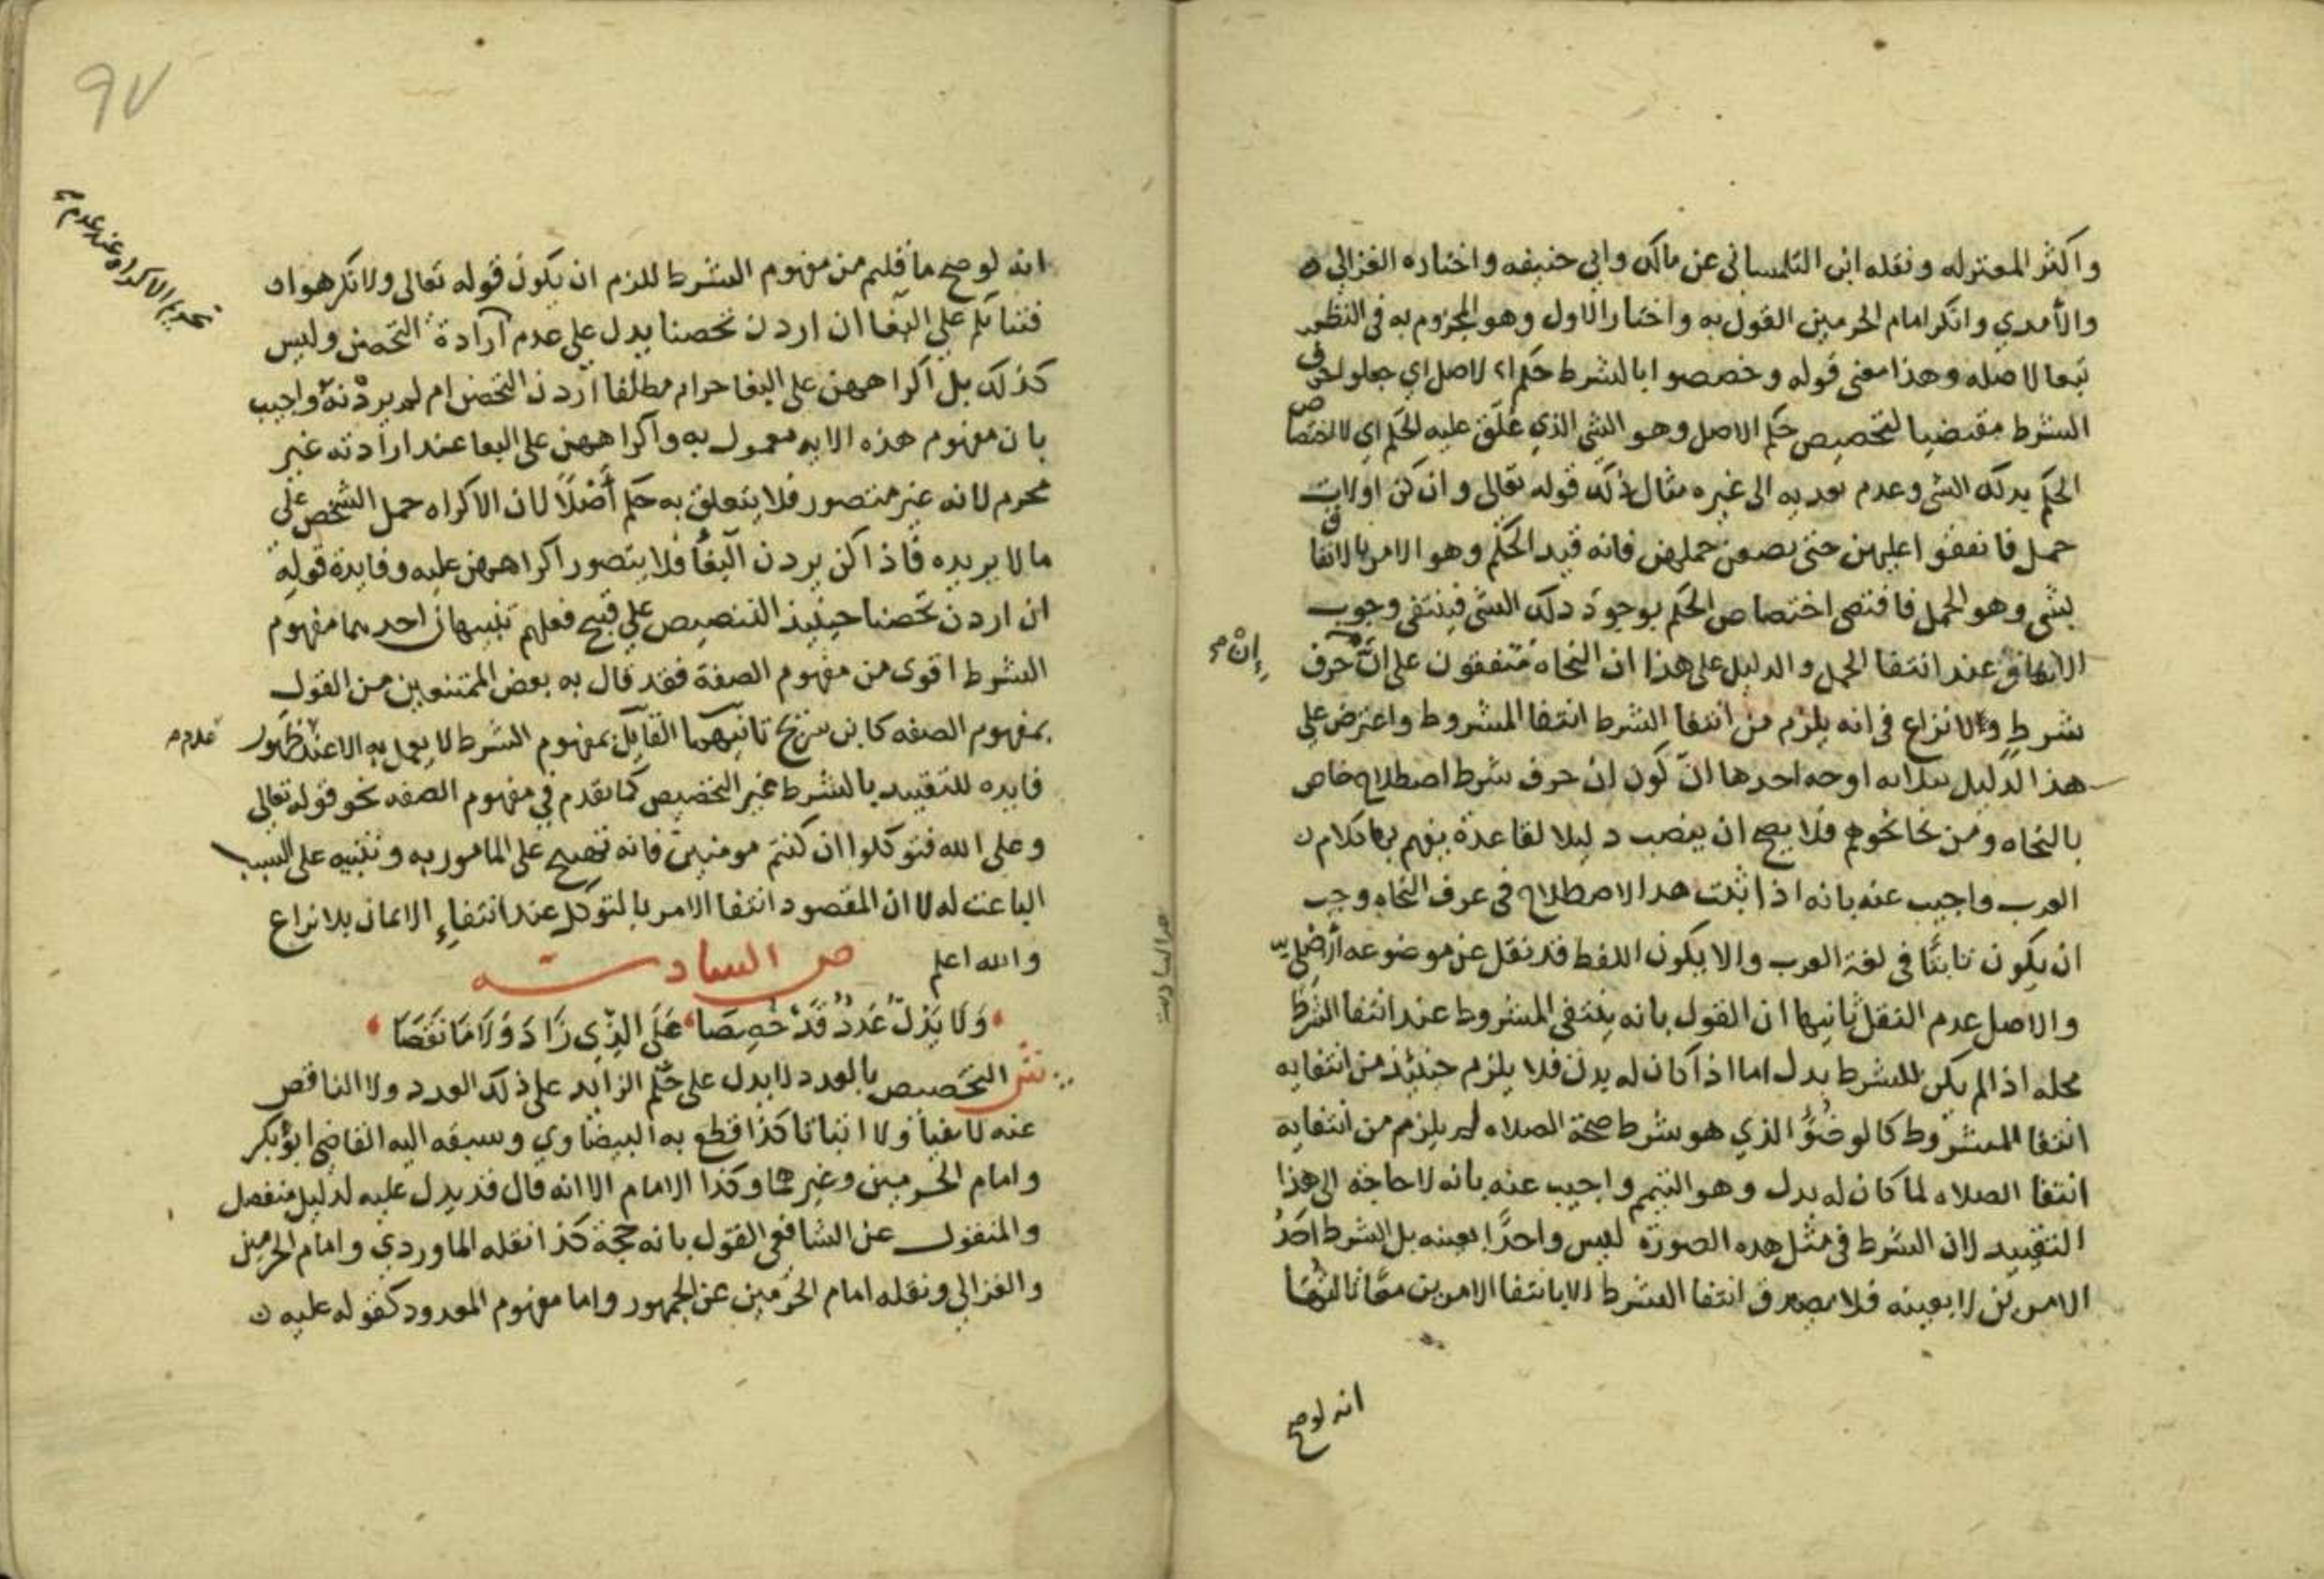 واكثر المعتزله ونقله ابن التلمساني عن مالك وابي حنيفه واختاره الغزالي
والأمدي وانكر امام الحرمين القول به واختار الاول وهو المجزوم به في النظم
تبعا لاصله وهذا معنى قوله وخصصوا بالشرط حكم الاصل اي جعلوا حرف
الشرط مقتضيا لتخصيص حكم الاصل وهو الشي الذي عُلّق عليه الحكم اي لاختصاص
الحكم بذلك الشي وعدم تعديه الى غيره مثال ذلك قوله تعالى وان كن اولات
حمل فانفقوا عليهن حتى يضعن حملهن فانه قيد الحكم وهو الامر بالانفاق
بشي وهو الحمل فاقتضى اختصاص الحكم بوجود ذلك الشي فينتفي وجوب
الانفاق عند انتفا الحمل والدليل على هذا ان النحاه متفقون على انّ حرف
إنْ
شرط ولا نزاع في انه يلزم من انتفا الشرط انتفا المشروط واعترض على
هذا الدليل بثلاثه اوجه احدها انّ كون ان حرف شرط اصطلاح خاص
بالنحاه ومن نحا نحوهم فلا يصح ان ينصب دليلا لقاعدة يفهم بها كلام
العرب واجيب عنه بانه اذا ثبت هذا الاصطلاح في عرف النحاه وجب
ان يكون ثابتًا في لغة العرب والا يكون اللفظ قد نقل عن موضوعه الأصلي
والاصل عدم النقل ثانيها ان القول بانه ينتفي المشروط عند انتفا الشرط
محله اذا لم يكن للشرط بدل اما اذا كان له بدل فلا يلزم حينئذ من انتفايه
انتفا المشروط كالوضُؤ الذي هو شرط صحة الصلاه لم يلزم من انتفايه
انتفا الصلاه لما كان له بدل وهو التيمم واجيب عنه بانه لا حاجة الى هذا
التقييد لان الشرط في مثل هذه الصورة ليس واحدًا بعينه بل الشرط احدُ
الامرين لا بعينه فلا يصدق انتفا الشرط الا بانتفا الامرين معًا ثالثها
انه لو صح
٩٧
انه لو صح ما قلتم من مفهوم الشرط للزم ان يكون قوله تعالى ولا تكرهوا
فتياتكم على البغا ان اردن تحصنا يدل على عدم ارادة التحصن وليس
تحريم الاكراه عند عدم
كذلك بل اكراههن على البغا حرام مطلقا أردن التحصن ام لم يردْنه واجيب
بان مفهوم هذه الايه معمول به واكراههن على البغا عند ارادته غير
محرم لانه غير متصور فلا يتعلق به حكم أصْلاً لان الاكراه حمل الشخص على
ما لا يريده فاذا كن يردن البغأ فلا يتصور اكراههن عليه وفايدة قوله
ان اردن تحصنا حينيذ التنصيص على قبح فعلهم تنبيهان احدهما مفهوم
الشرط اقوى من مفهوم الصفة فقد قال به بعض الممتنعين من القول
بمفهوم الصفه كابن سريج ثانيهما القايل بمفهوم الشرط لا يعمل به الا عند ظهور
عدم
فايده للتقييد بالشرط غير التخصيص كما تقدم في مفهوم الصفه نحو قوله تعالى
وعلى الله فتوكلوا ان كنتم مومنين فانه تهييج على المامور به وتنبيه على السبب
الباعث له لا ان المقصود انتفا الامر بالتوكل عند انتفاء الايمان بلا نزاع
والله اعلم ص السادسة
وَلَا يَدُلّ عَدَدٌ قَدْ خُصِصَا عَلَى الذِّي زَادَ وَلَا مَا نَقَصَا
ش التخصيص بالعدد لا يدل على حكم الزايد على ذلك العدد ولا الناقص
عنه لا نفياً ولا اثباتا كذا قطع به البيضاوي وسبقه اليه القاضي ابو بكر
وامام الحرمين وغيرهما وكذا الامام الا انه قال قد يدل عليه لدليل منفصل
والمنقول عن الشافعي القول بانه حجة كذا نقله الماوردي وامام الحرمين
والغزالي ونقله امام الحرمين عن الجمهور واما مفهوم المعدود كقوله عليه